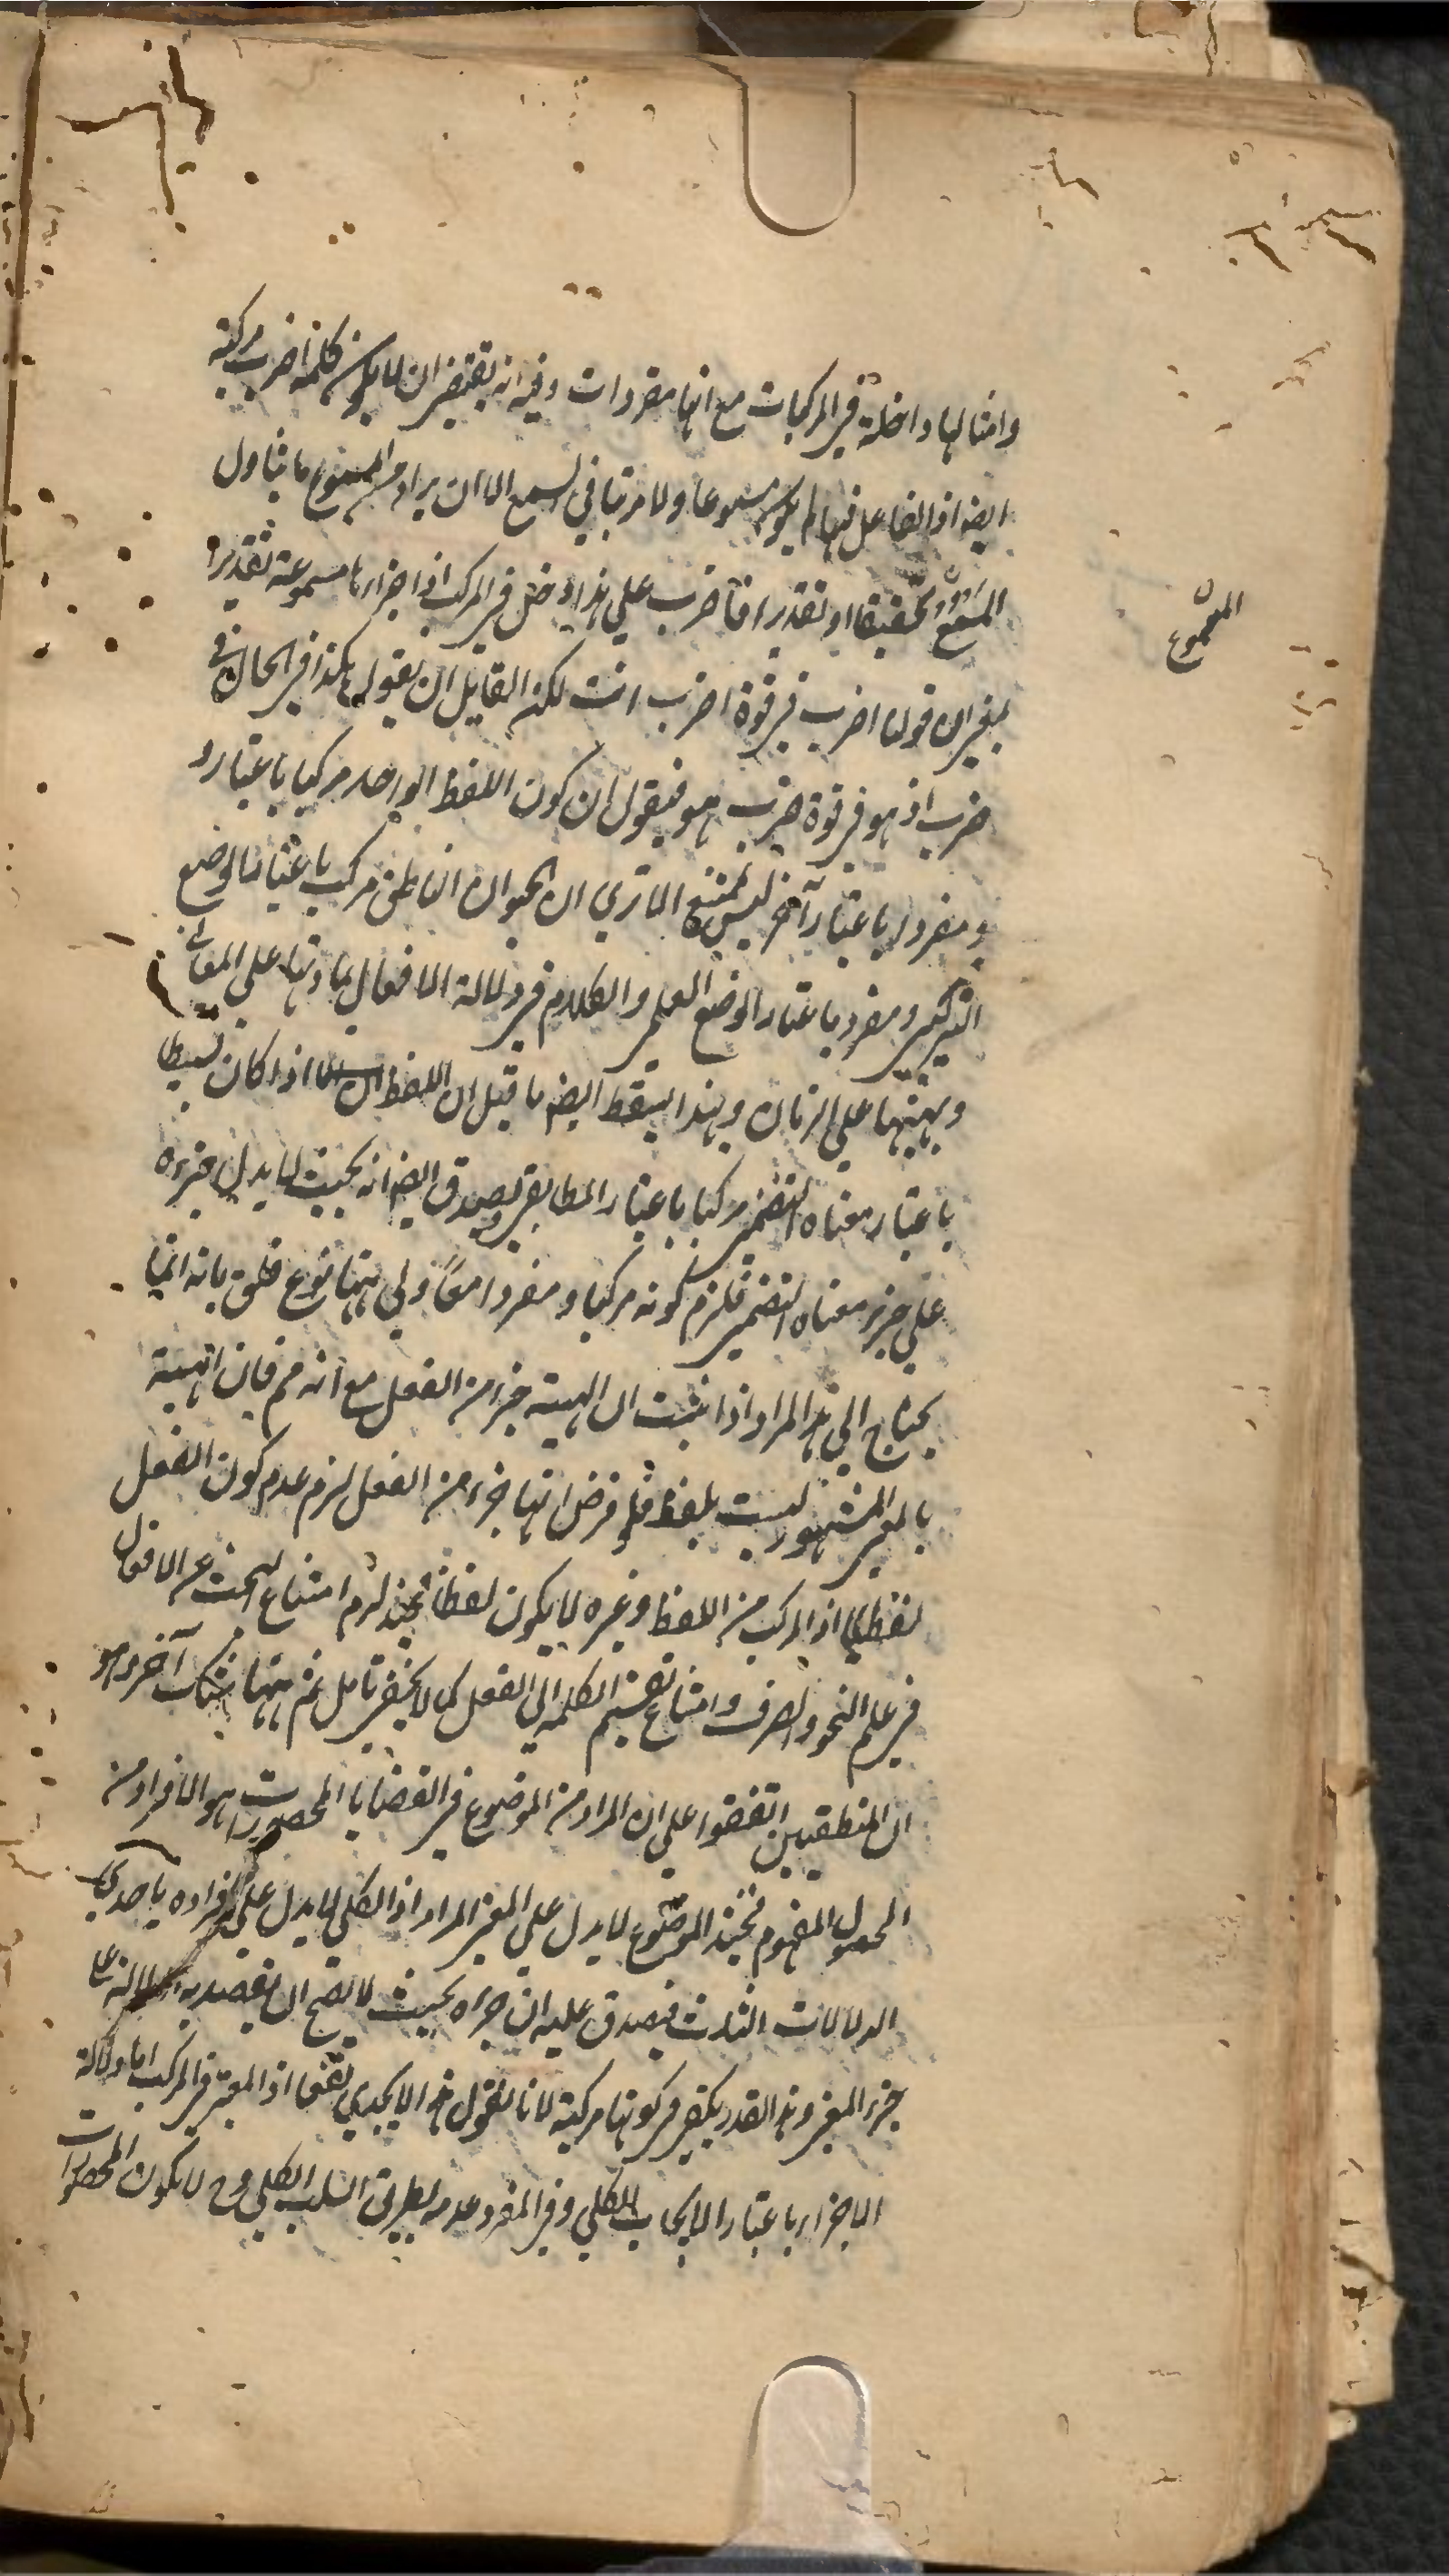 وامثالها داخلة في المركبات مع انها مفردات وفيه انه يقتضي ان لا يكون كلمة اضرب مركبة
ايضا اذ الفاعل فيها لم يكن مسموعا ولا مرتبا في السمع الا ان يراد من المسموع ما يتناول
المسموع تحقيقا او تقديرا فاضرب على هذا داخل في المركب اذ اجزاؤها مسموعة تقديرا
بمعنى ان قولنا اضرب في قوة اضرب انت لكن القايل ان يقول هكذا في الحال في
ضرب اذ هو في قوة ضرب هو فيقول ان كون اللفظ الواحد مركبا باعتبار
ومفردا باعتبار آخر ليس بممتنع الا تري ان الحيوان الناطق مركب باعتبار الوضع
التركيبي ومفرد باعتبار الوضع العلمي والكلام في دلالة الافعال بمادتها على المعاني
وبهيئتها على الزمان وبهذا يسقط ايضا ما قيل ان اللفظ اذا كان بسيطا
باعتبار معناه التضمني مركبا باعتبار المطابقي يصدق ايضا انه بحيث لا يدل جزءه
علي جزء معناه التضمني فلزم كونه مركبا ومفردا معًا ولي ههنا نوع قلق بانه انما
يحتاج الي هذا المراد اذا ثبت ان الهيئة جزء من الفعل مع انه مم فان الهيئة
بالمعنى المشهور ليست بلفظ فلو فرض انها جزء من الفعل لزم عدم كون الفعل
لفظا اذ المركب من اللفظ وغيره لا يكون لفظا فحينئذ لزم امتناع البحث عن الافعال
في علم النحو والصرف وامتناع تقسيم الكلمة الي الفعل كما لا يخفى تامل ثم ههنا شك آخر وهو
ان المنطقيين اتفقوا علي ان المراد من الموضوع في القضايا المحصورات هو الافراد من
المحمول المفهوم فحينئذ الموضوع لا يدل علي المعنى المراد اذ الكلي لا يدل علي افراده باحدى
الدلالات الثلث فيصدق عليه ان جزءه بحيث لا يصح ان يقصد به الدلالة على
جزء المعنى وهذا القدر يكفي في كونها مركبة لانا نقول هذا لا يجدي نفعا اذ المعتبر في المركب اما دلالة
الاجزاء باعتبار الايجاب الكلي وفي المفرد عدمه بطريق السلب الكلي وح لا يكون المحصورات
المسموع